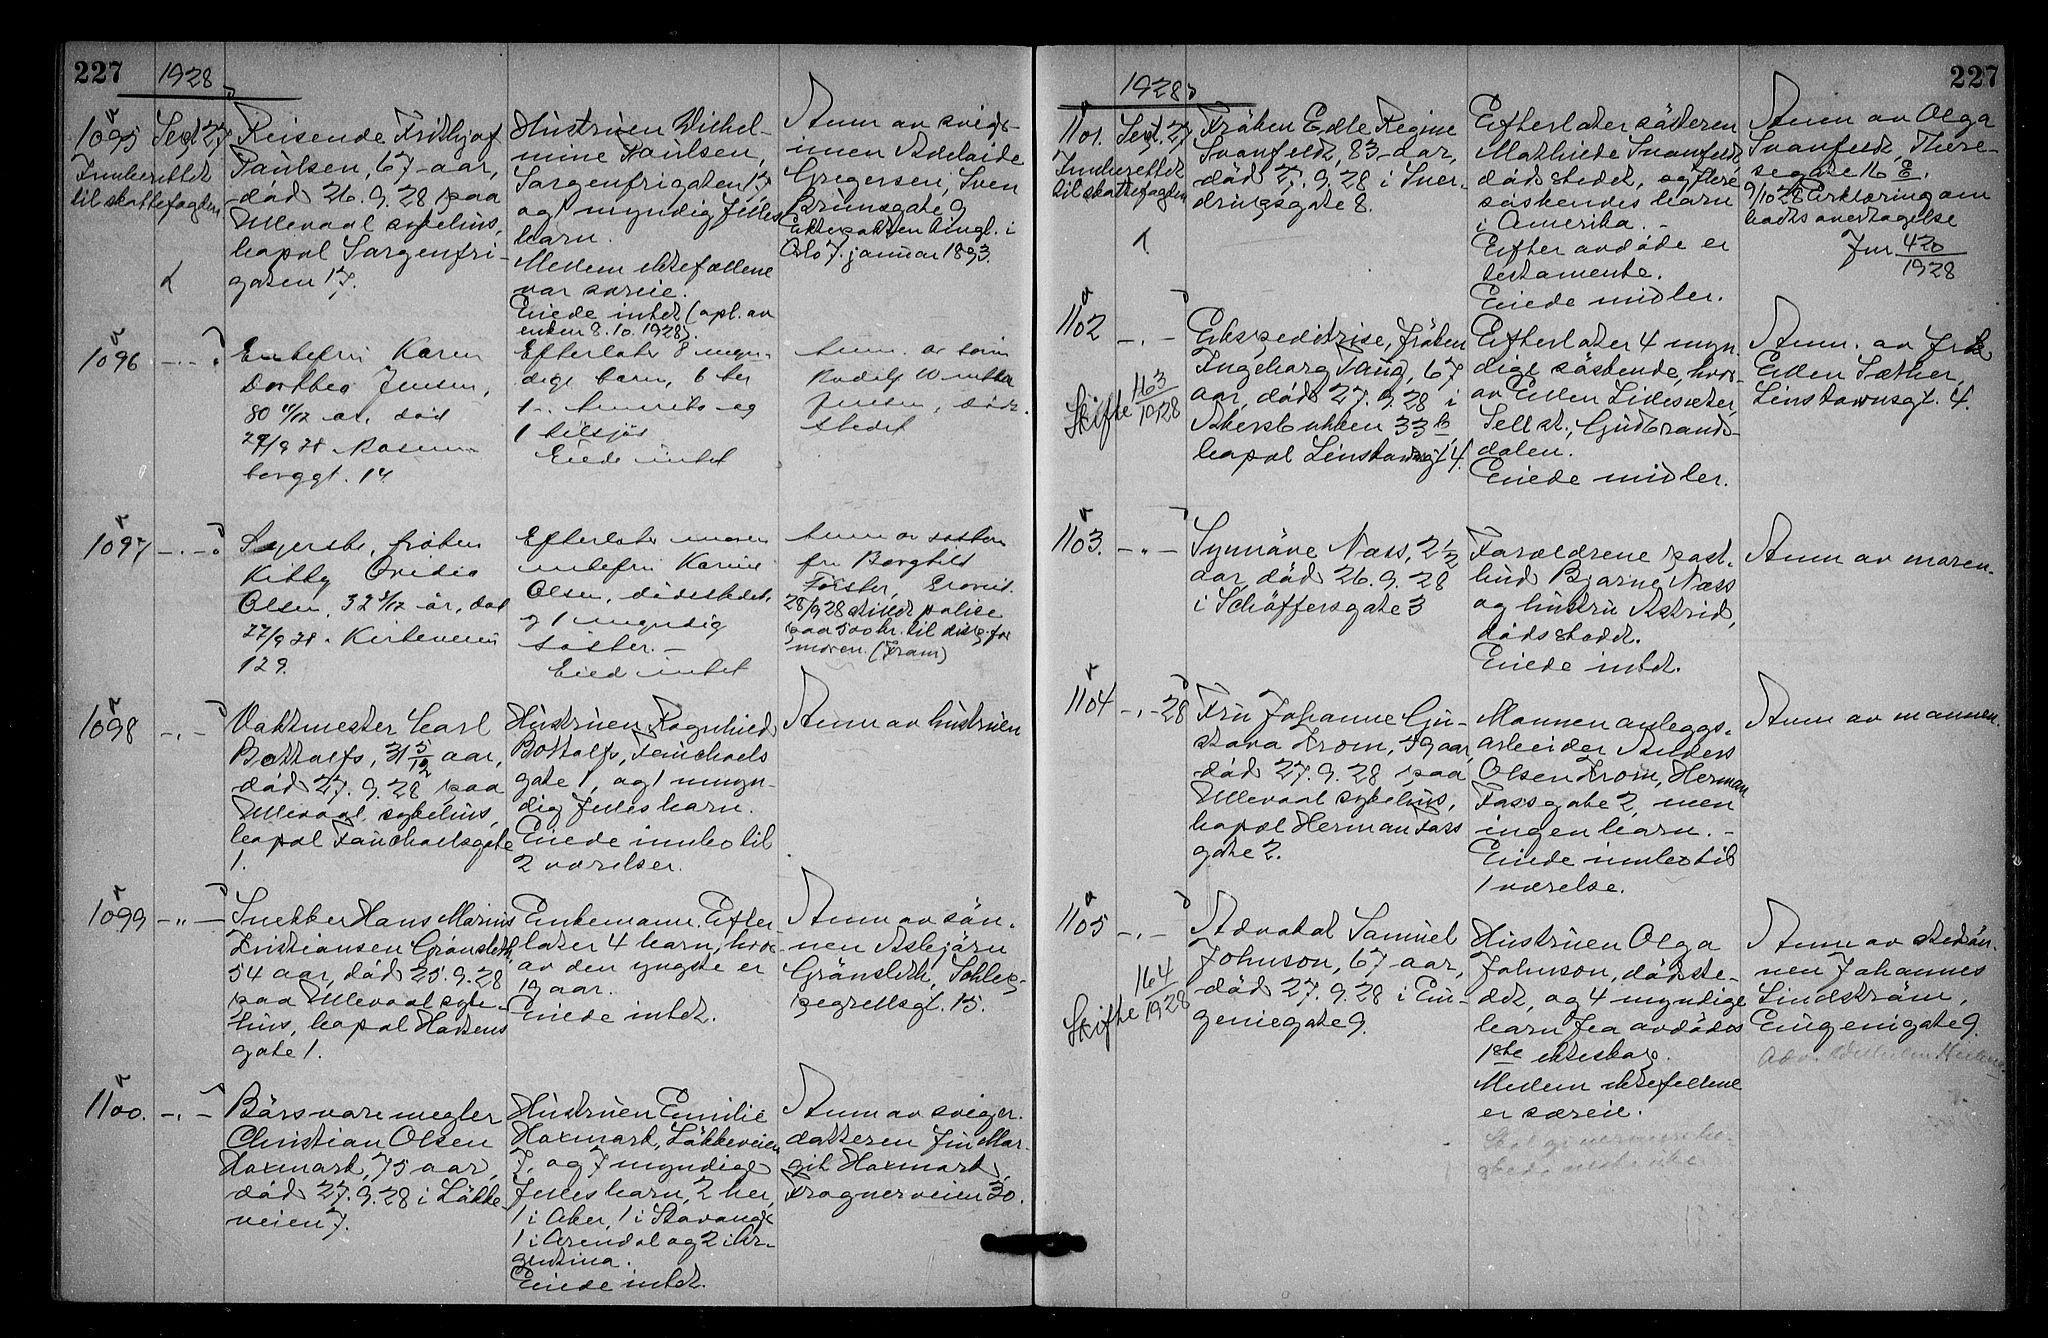 227
1928
1095
Sept 27
Innberettet
til skattefogden
Reisende Fridthjof
Paulsen, 67 aar,
död 26.9.28 paa
Ullevaal sykehus,
bopæl Sorgenfri-
gaten 17.
Hustruen Wilhel-
mine Paulsen,
Sorgenfrigaten 17,
og 1 myndig fælles
barn.
Mellem ektefællene
var særeie.
Eiede intet (opl. av
enken 8.10.1928).
Anm av sviger-
Adelaide
Gregersen, Sven
Bruunsgate 9
Ektepakten tingl. i
Oslo 7. januar 1893.
1096
Enkefru Karen
Dorthea Jensen,
80 11/12 år, död
Rosen-
borggt. 14
Efterlater 8 myn-
dige barn, 6 her
1 i Amerika og
1 tilsjös
Eiede intet
Anm. av sönn
Rudolf
Jensen, döds-
stedet
1097
Syerske, fröken
Kitty Ovidia
Olsen, 32 3/12 år, död
27/9 28 Kirkeveien
129.
Efterlater moren
enkefru Karine
Olsen, dödsstedet,
og 1 myndig
söster. -
Eied intet
Anm av söster
fru Borghild
Forster,
28/9 28 police
paa 500 kr. til disp. for
moren. (Fram)
1098
Vaktmester Carl
Bottolfs, 31 5/12 aar,
död 27.9.28 paa
Ullevaal sykehus,
bopæl Fauchaldsgate
1.
Hustruen Ragnhild
Bottolfs, Fauchalds
gate 1, og 1 umyn-
dig fælles barn.
Eiede innbo til
2 værelser.
Anm av hustruen
1099
Snekker Hans Marius
Kristiansen Grönsleth,
54 aar, död 25.9.28
paa Ullevaal syke-
hus, bopæl Holsens
gate 1.
Enkemann. Efter-
later 4 barn, hvor-
av den yngste er
19 aar.
Eiede intet.
Anm av sön-
nen Asbjörn
Grönsleth, Schlep-
pegrellsgt. 15.
1100.
Börsvaremegler
Christian Olsen
Hoxmark, 75 aar,
död 27.9.28 i Lökke-
veien 7.
Hustruen Emilie
Hoxmark, Lökkeveien
7, og 7 myndige
fælles barn, 2 her,
1 i Aker, 1 i Stavanger
1 i Arendal og 2 i Ar-
gentina.
Eiede intet.
Anm av sviger-
datteren fru Mar-
git Hoxmark,
Frognerveien 30.
227
1928
1101.
Sept. 27
Innberettet
til skattefogden
Fröken Edle Regine
Svanfeldt, 83 aar,
död 27.9.28 i Sver-
drupsgate 8.
Efterlater sösteren
Mathilde Svanfeldt,
dödsstedet, og flere
söskendes barn
i Amerika. -
Efter avdöde er
testamente.
Eiede midler.
Anm av Olga
Svanfeldt, There-
segate 16 E.
9/10 28 Erklæring om
boets overtagelse
Jnr 420/1928
1102
Skifte 163/1928
Ekspeditrise, fröken
Ingeborg Haug, 67
aar, död 27.9.28 i
Akersbakken 33 b,
bopæl Linstowsgt 4.
Efterlater 4 myn-
dige söskende, hvor-
av Ellen
Sell st., Gudbrands-
dalen.
Eiede midler.
Anm. av frk
Ellen Sæther,
Linstowsgt. 4.
1103.
Synnöve Næss, 2 1/2
aar, död 26.9.28
i Schöffersgate 3
Forældrene post-
bud Bjarne Næss
og hustru Astrid,
dödsstedet.
Eiede intet.
Anm av moren.
1104
28
Fru Johanne Gu-
stava Krom, 59 aar,
död 27.9.28 paa
Ullevaal sykehus,
bopæl Herman Foss
gate 2.
Mannen anleggs-
arbeider Anders
Olsen Krom, Herman
Fossgate 2, men
ingen barn. -
Eiede innbo til
1 værelse.
Anm av mannen.
1105
Skifte 164/1928
Advokat Samuel
Johnson, 67 aar,
död 27.9.28 i Eu-
geniegate 9.
Hustruen Olga
Johnson, dödsste-
det, og 4 myndige
barn fra avdödes
1ste ekteskap.
Mellem ektefellene
er særeie.
Anm av stedsön-
nen Johannes
Lindström,
Eugenigate 9.